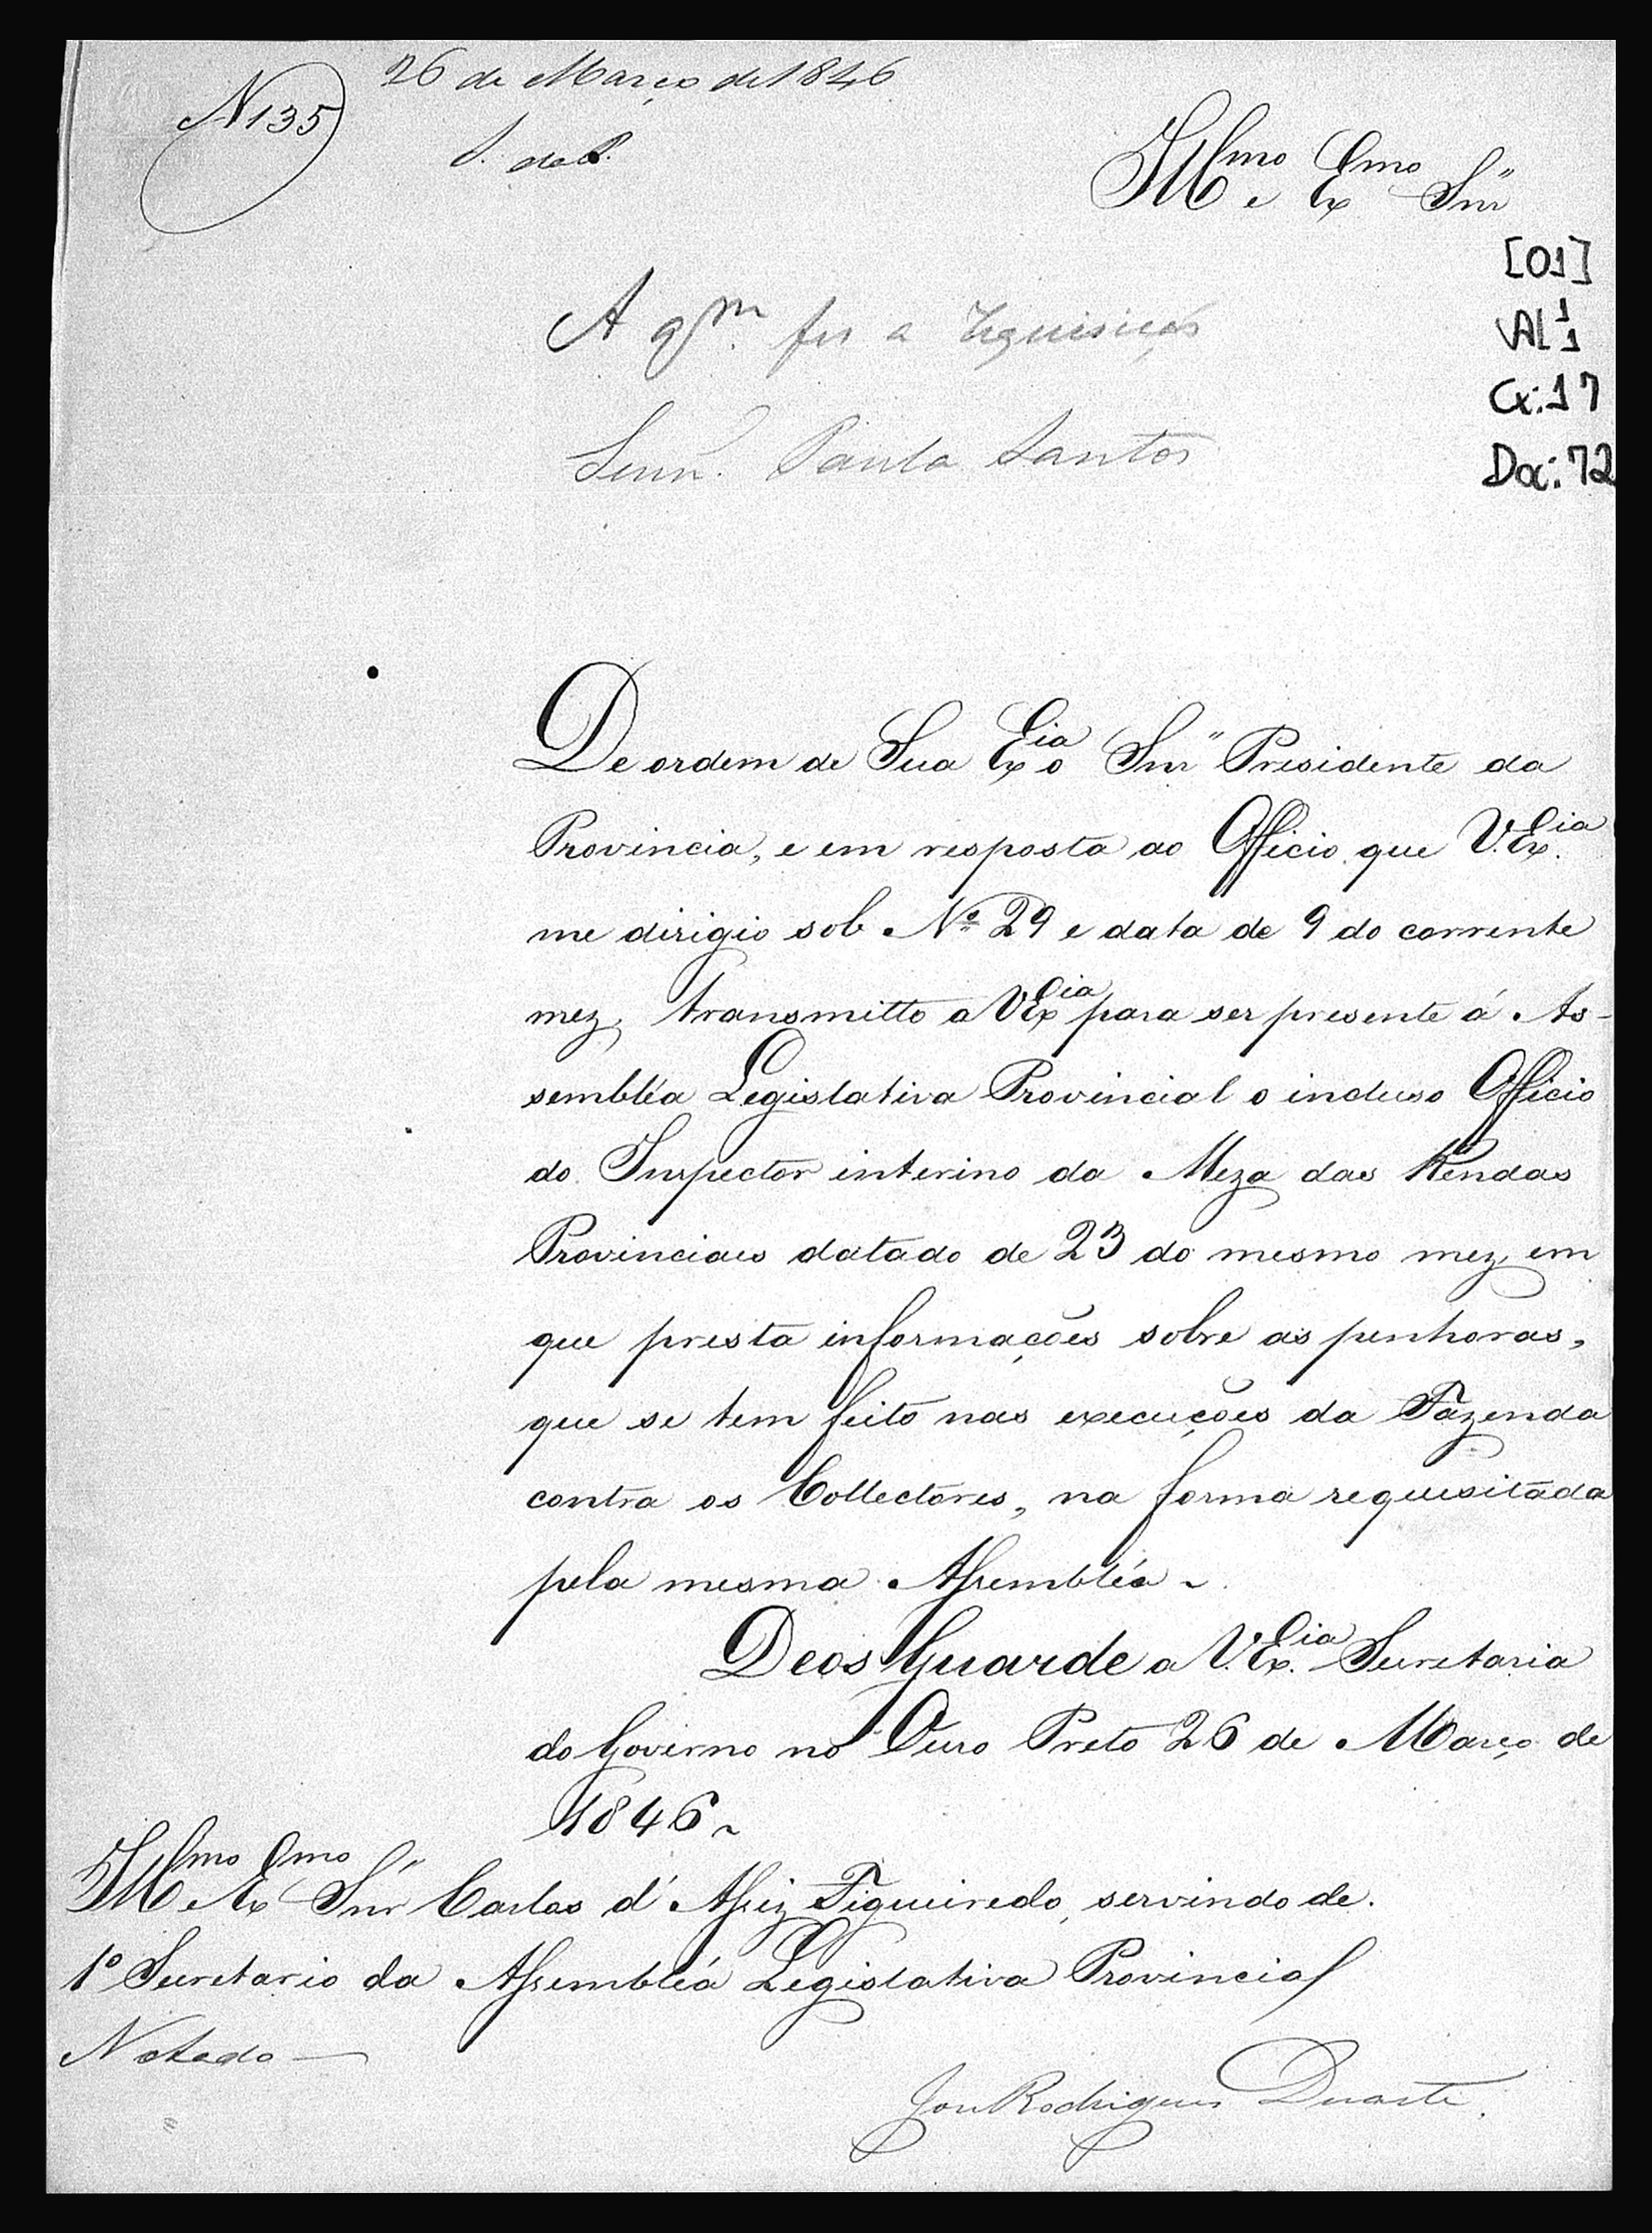 26 de Março de 1846
N 135
S. da P.
Illmo e Exmo Snr
[01]
AL 1 1
Cx: 17
Doc: 72
A qm. fez a requisição
Senr. Paula Santos
De ordem de Sua Excia o Snr Presidente da
Provincia, e em resposta ao Officio que V. Excia
me dirigio sob Nº 29 e data de 9 do corrente
mez, transmitto a V Excia para ser presente á As-
sembléa Legislativa Provincial o incluso Officio
do Inspector interino da Meza das Rendas
Provinciaes datado de 23 do mesmo mez, em
que presta informações sobre as penhoras,
que se tem feito nas execuções da Fazenda
contra os Collectores, na forma requisitada
pela mesma Assembléa
Deos Guarde a V. Excia Secretaria
do Governo no Ouro Preto 26 de Março de
1846
Illmo e Exmo Snr Carlos d' Assiz Figueiredo, servindo de
1º Secretario da Assembléa Legislativa Provincial
Notado
José Rodrigues Duarte.